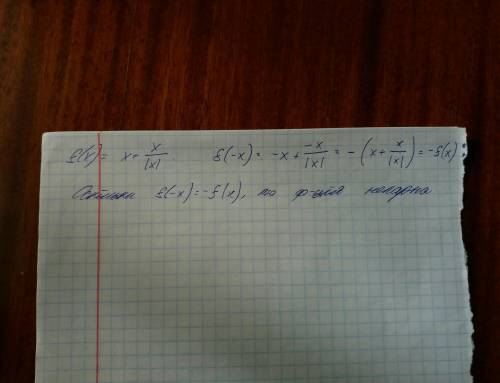 f(x) = x + x/|x| f(-x) = -x + -x/|x| = -(x + x/|x|) = -f(x)
Оскільки f(-x) = -f(x), то ф-ція непарна